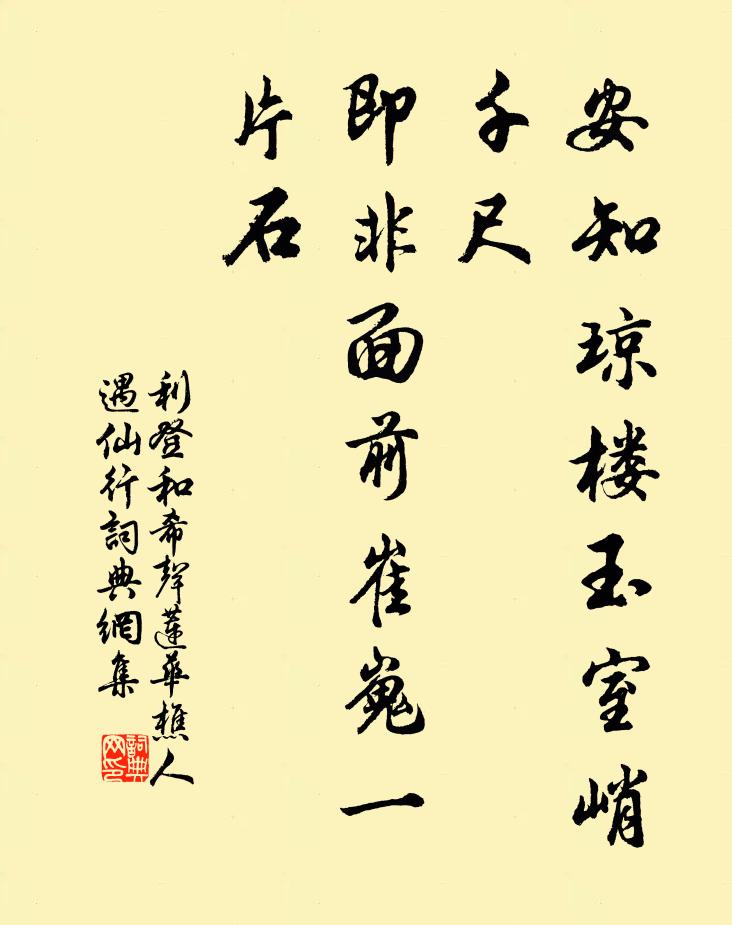 安知琼楼玉室峭
千尺
即非面前崔嵬一
片石
利登和希聲蓮華樵人
遇仙行詞典網集
詞典
网印